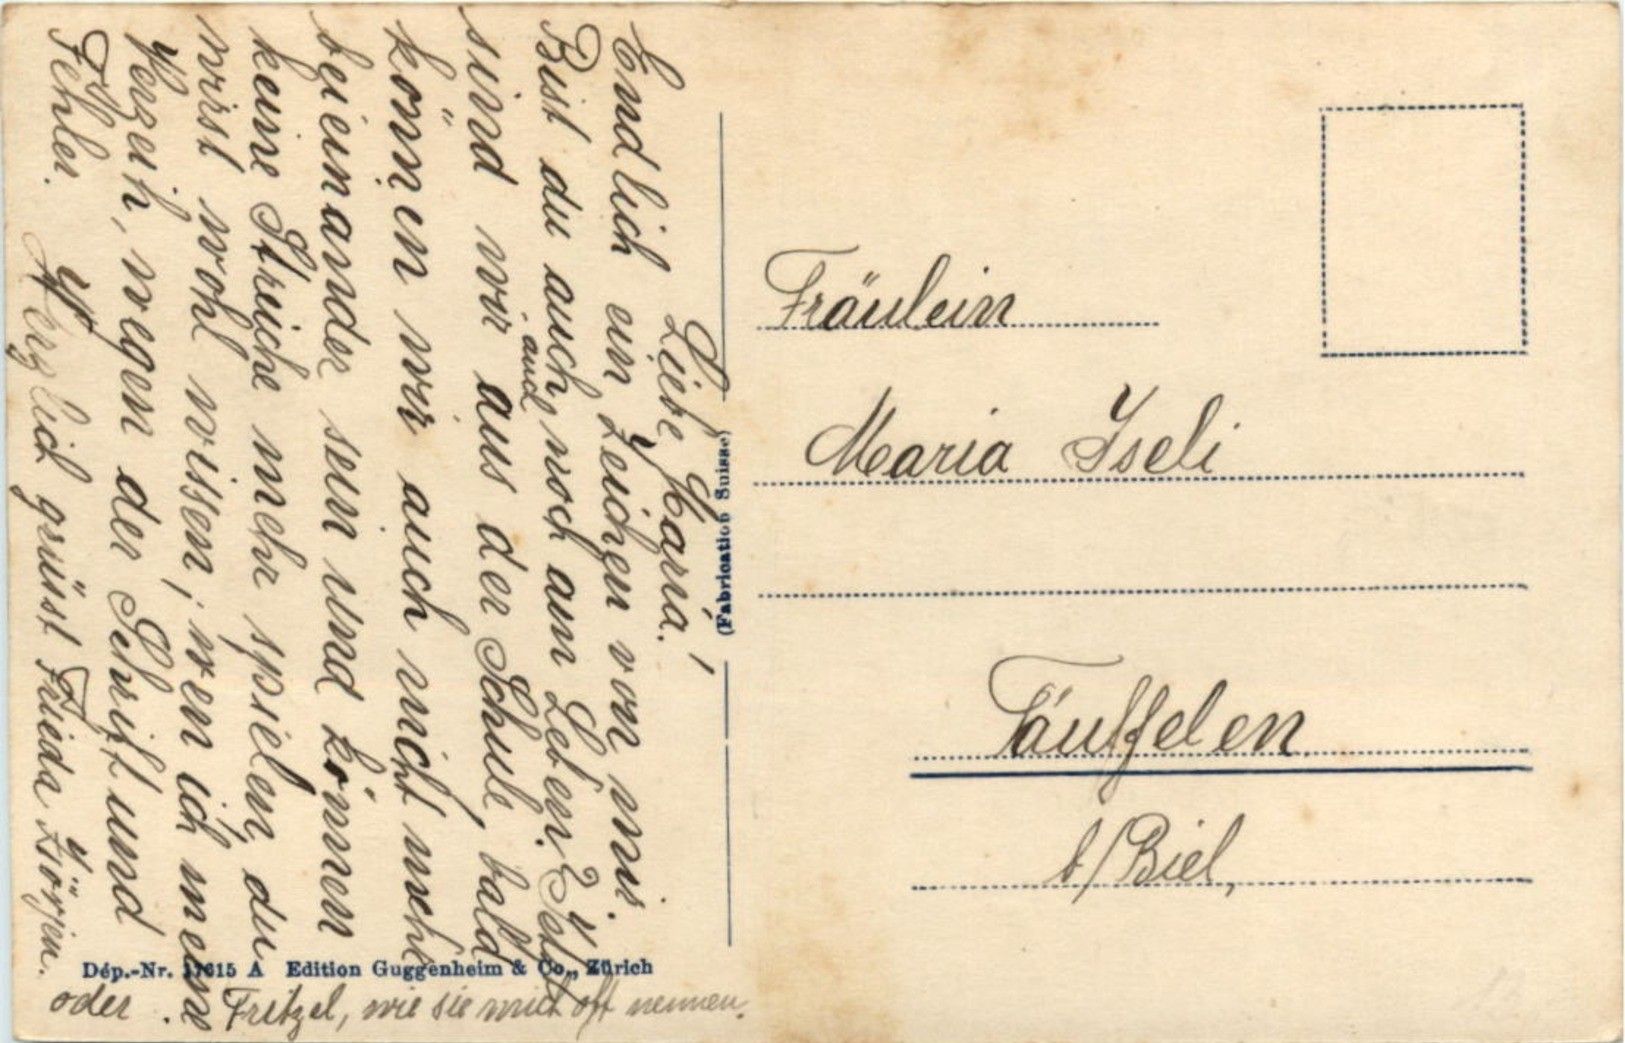 Liebe Maria!
Endlich ein Zeichen von mir.
Bist du auch noch am Leben?
sind wir aus der Schule, bald
auch
können wir auch nicht mehr
beieinander sein und können
keine Streiche mehr spielen, du
wirst wohl wissen, wen ich meine
Verzeih, wegen der Schrift und
Fehler.
Herzlich grüsst Frieda
oder. Fritzel, wie sie mich oft nennen.
Dép.-Nr. 17615 A Edition Guggenheim & Co., Zürich
(Fabrication Suisse)
Fräulein
Maria Iseli
Täuffelen
b/Biel,